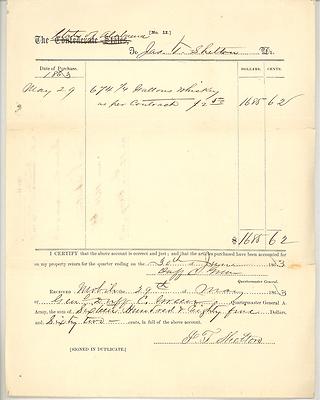 [No. 12.]
State of Alabama
The Confederate States,
To Jas. T. Shelton Dr.
Date of Purchase. DOLLARS. CENTS.
1863
May 29 674 1/4 Gallons Whiskey
as per Contract 1685 62
$ 1685 62
I CERTIFY that the above account is correct and just; and that the articles purchased have been accounted for
on my property return for the quarter ending on the 30th of June 1863
Duff C. Green
Quartermaster General.
RECEIVED Mobile the 29th of May 1863
of Genl Duff C. Green Quartermaster General A.
Army, the sum of Sixteen Hundred & Eighty five Dollars,
and Sixty two cents, in full of the above account.
J T Shelton
[SIGNED IN DUPLICATE.]